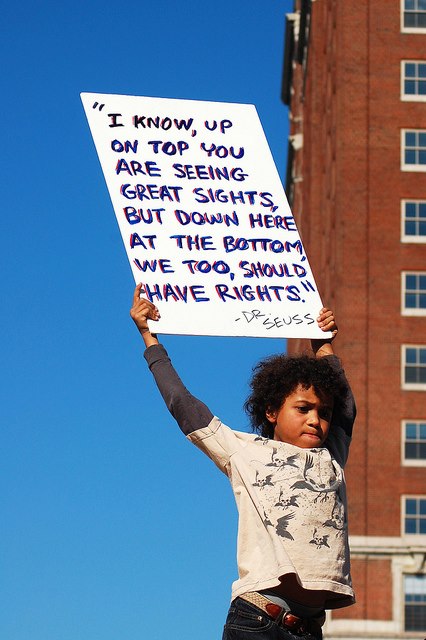 "I KNOW, UP
ON TOP YOU
ARE SEEING
GREAT SIGHTS,
BUT DOWN HERE
AT THE BOTTOM,
WE TOO, SHOULD
HAVE RIGHTS."
-DR. SEUSS